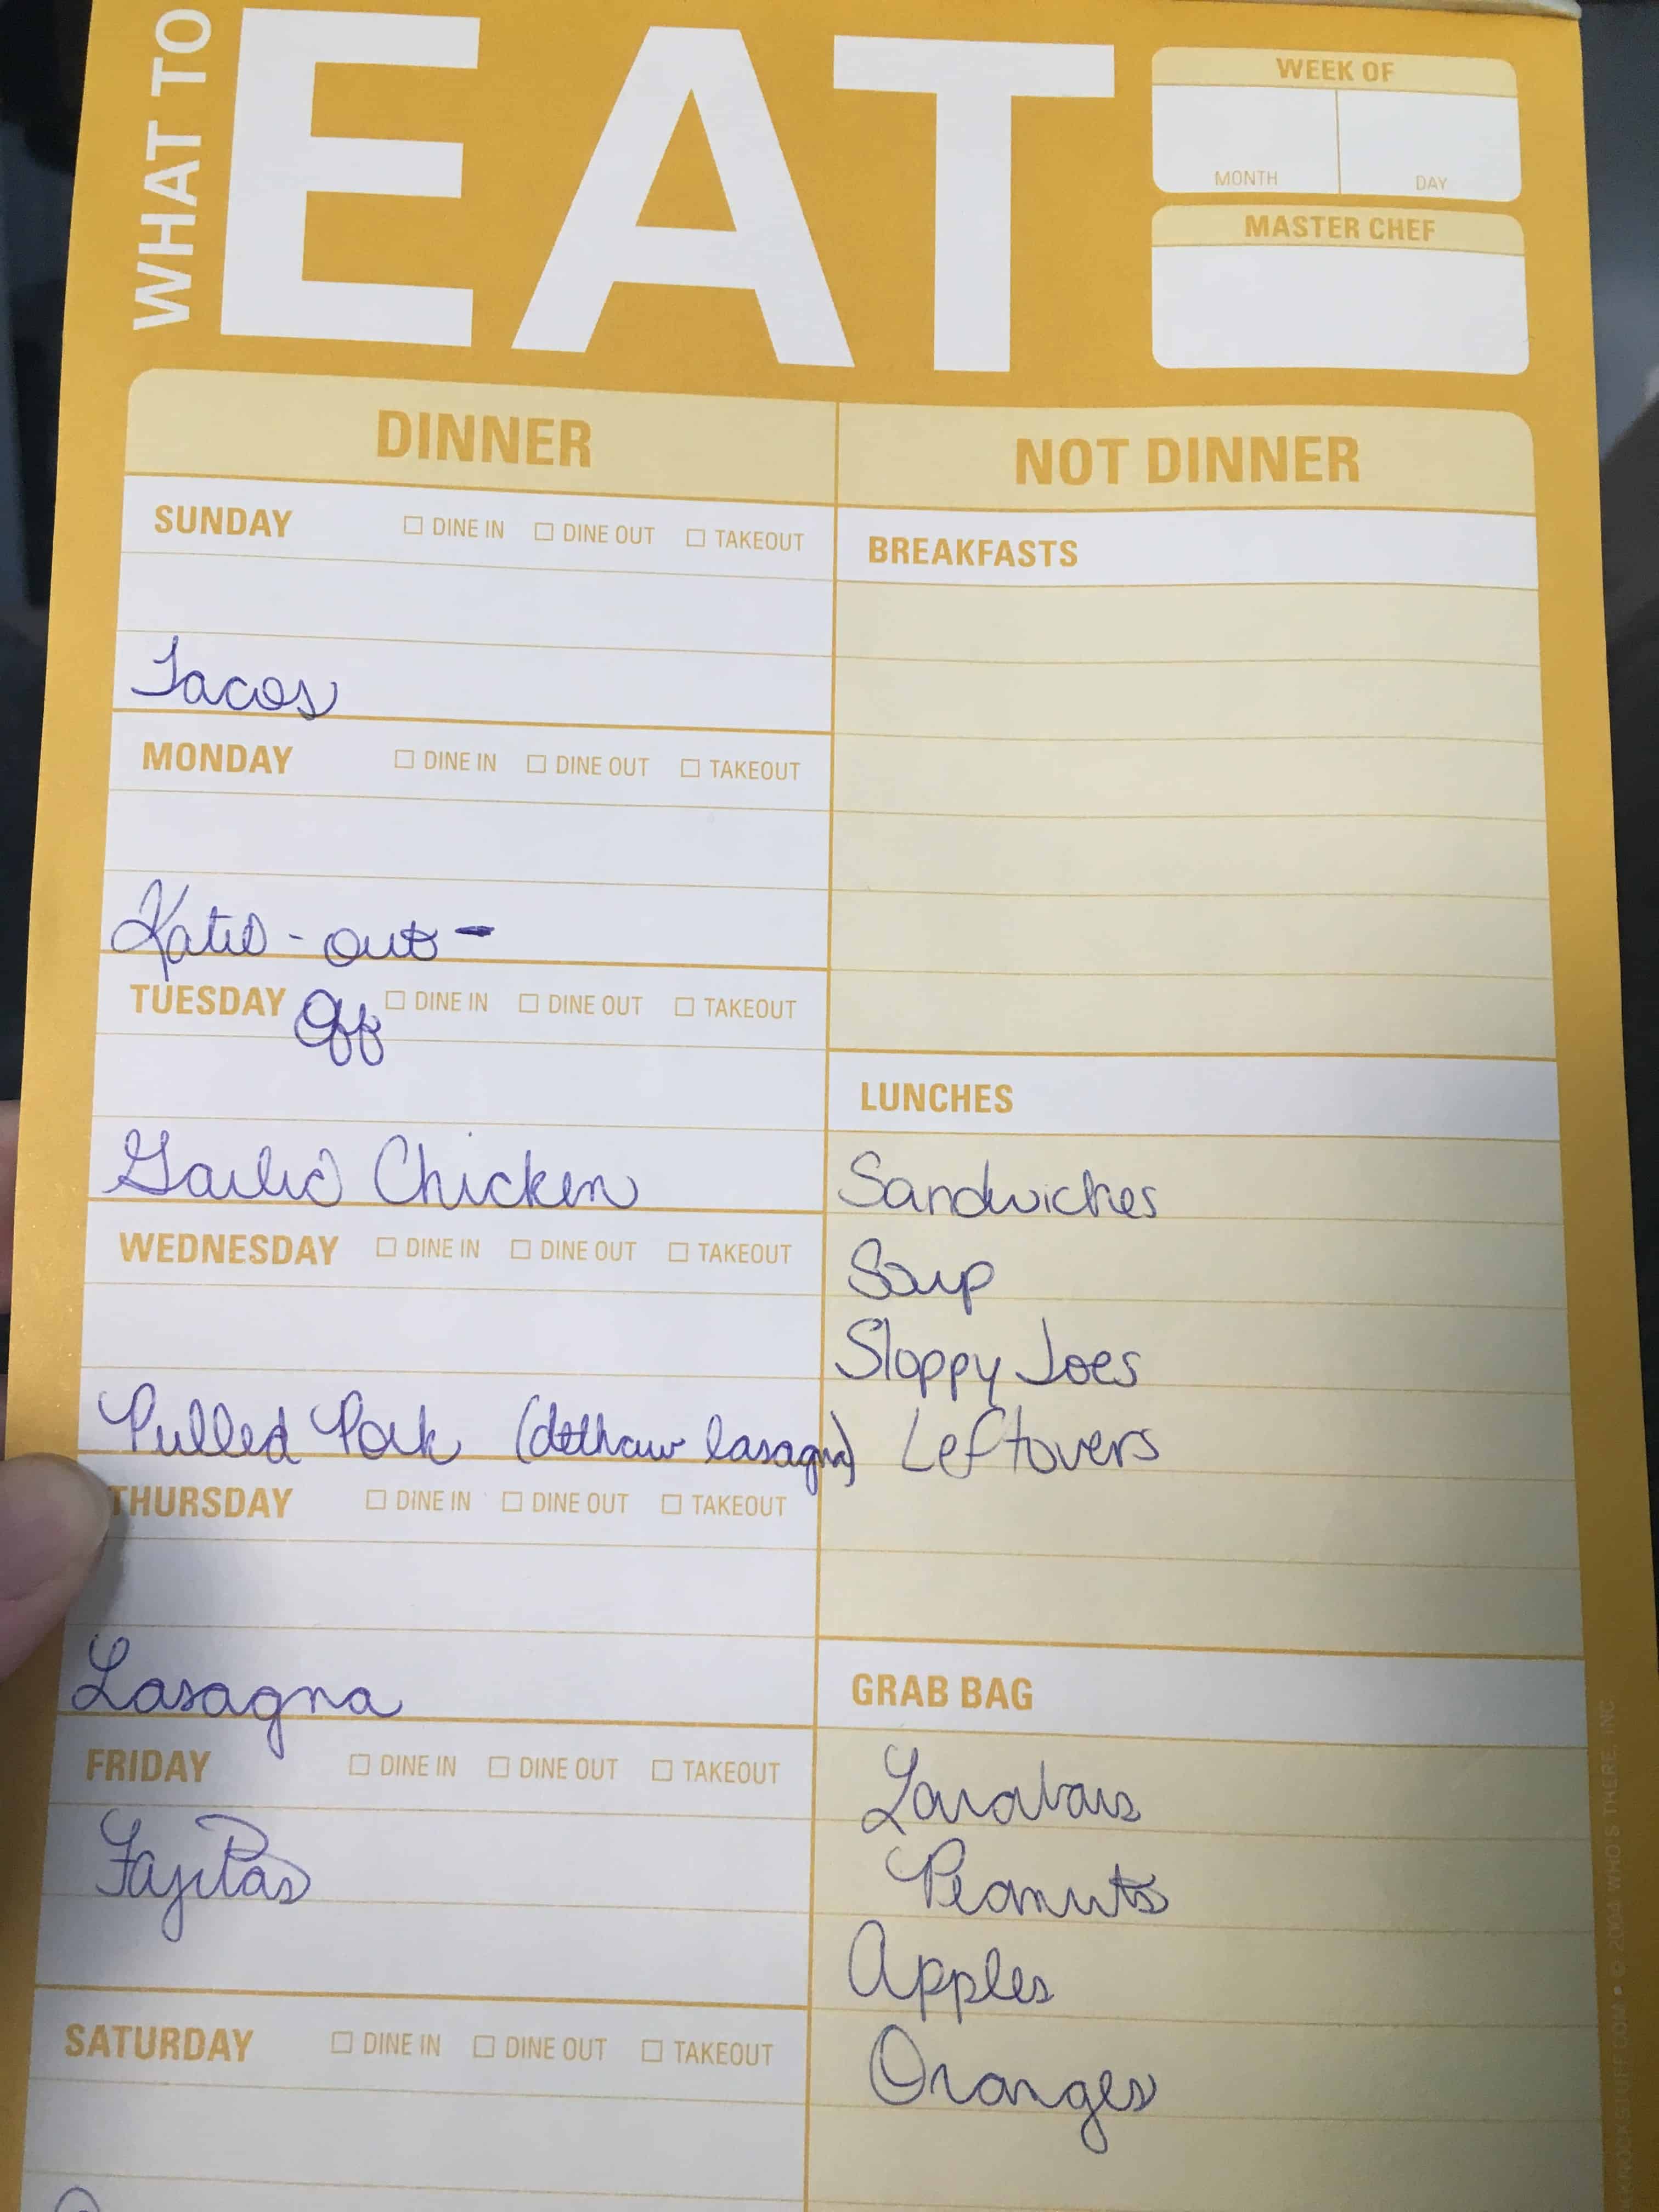 WHAT TO
EAT
WEEK OF
MONTH DAY
MASTER CHEF
DINNER
SUNDAY □ DINE IN □ DINE OUT □ TAKEOUT
Tacos
MONDAY □ DINE IN □ DINE OUT □ TAKEOUT
Katie - out -
TUESDAY Off □ DINE IN □ DINE OUT □ TAKEOUT
Garlic Chicken
WEDNESDAY □ DINE IN □ DINE OUT □ TAKEOUT
Pulled Pork (dethaw lasagna)
THURSDAY □ DINE IN □ DINE OUT □ TAKEOUT
Lasagna
FRIDAY □ DINE IN □ DINE OUT □ TAKEOUT
Fajitas
SATURDAY □ DINE IN □ DINE OUT □ TAKEOUT
NOT DINNER
BREAKFASTS
LUNCHES
Sandwiches
Soup
Sloppy Joes
Leftovers
GRAB BAG
Larabars
Peanuts
Apples
Oranges
KNOCKSTUFF.COM • © 2004 WHO'S THERE, INC.